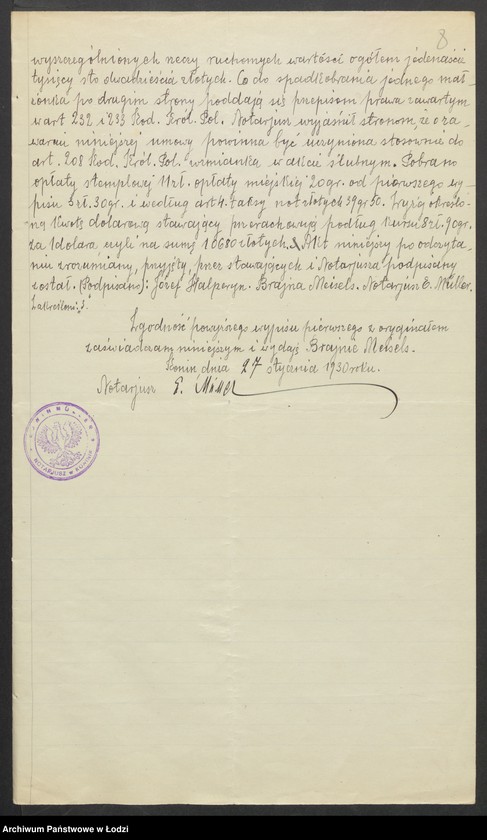 8
wyszczególnionych rzeczy ruchomych wartości ogółem jedenaście
tysięcy sto dwadzieścia złotych. Co do spadkobrania jednego mał-
żonka po drugim strony poddają się przepisom prawa zawartym
w art 232 i 233 Kod. Król. Pol. Notarjusz wyjaśnił stronom, że o za-
warciu niniejszej umowy powinna być uczyniona stosownie do
art. 208 Kod. Król. Pol. wzmianka w akcie ślubnym. Pobrano
opłaty stemplowej 11 zł. opłaty miejskiej 20 gr. od pierwszego wy-
pisu 3 zł. 30 gr. i według art 4. taksy not złotych 59 gr 50. Wyżej określo-
ną kwotę dolarową stawający przerachowują podług kursu 8 zł. 90 gr.
za 1 dolara czyli na sumę 10680 złotych. Akt niniejszy po odczyta-
niu zrozumiany, przyjęty, przez stawających i Notarjusza podpisany
został. (Podpisano): Józef Halperyn. Brajna Meisels. Notarjusz E. Müller.
Zakreślono:
Zgodność powyższego wypisu pierwszego z oryginałem
zaświadczam niniejszym i wydaję Brajnie Meisels.
Konin, dnia 27 stycznia 1930 roku.
Notarjusz E. Müller
NOTARJUSZ W KONINIE
Archiwum Państwowe w Łodzi